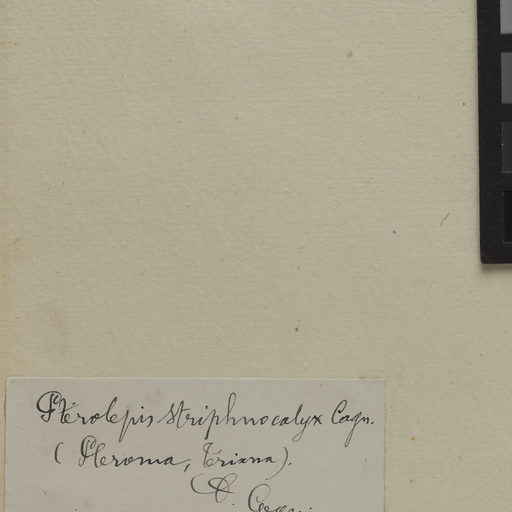 Pterolepis striphnocalyx Cogn.
(Pleroma, Triana).
Cogn.